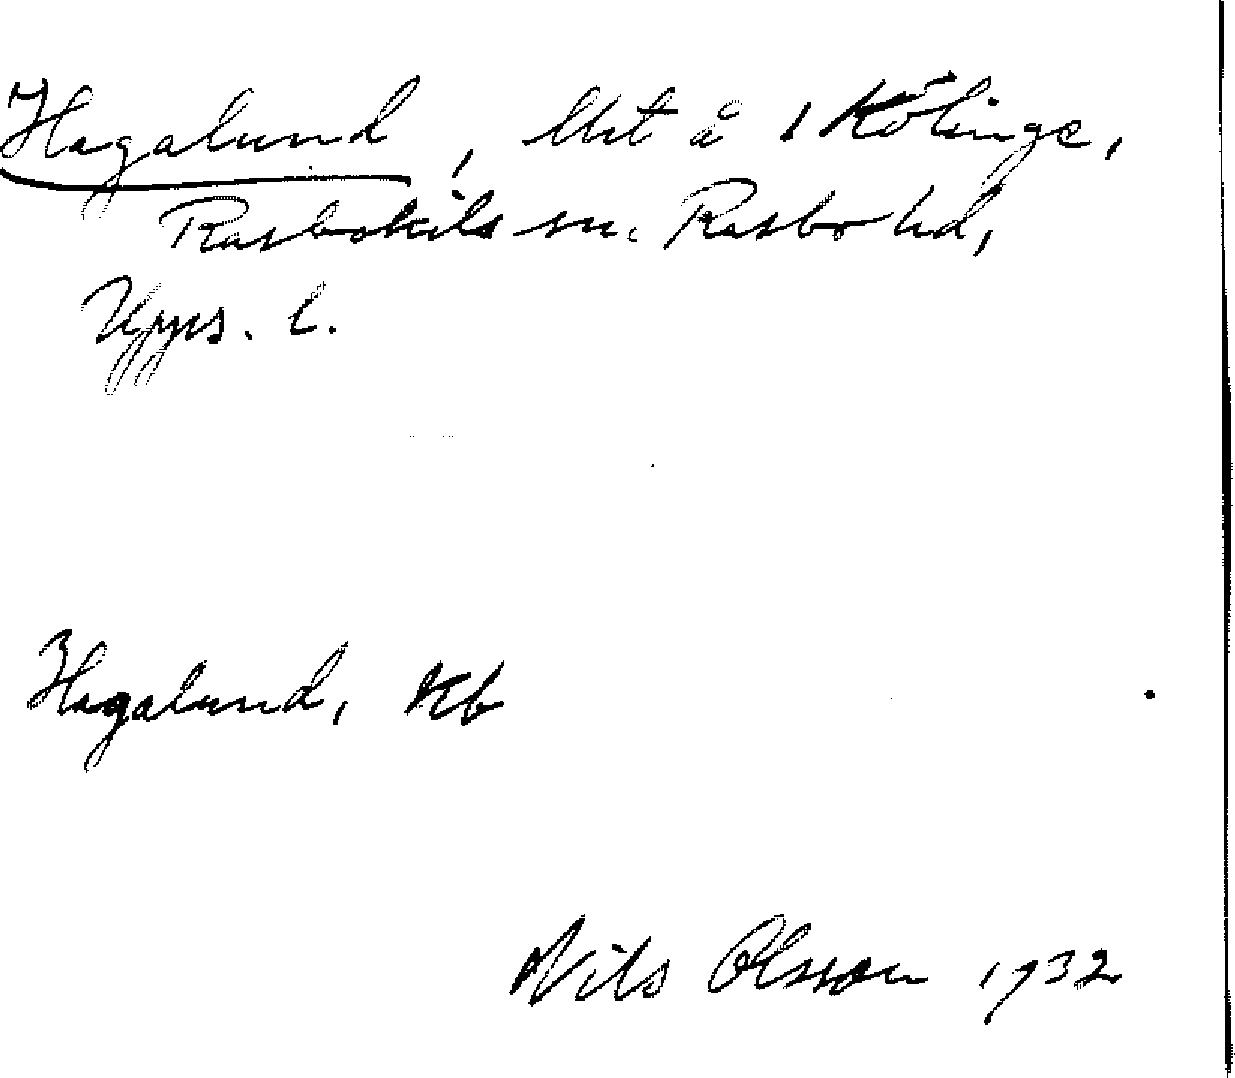 Hagalund, lht å 1 Kölinge,
Rasbokils sn. Rasbo hd,
Upps. l.
Hagalund, Kb
Nils Olsson 1932